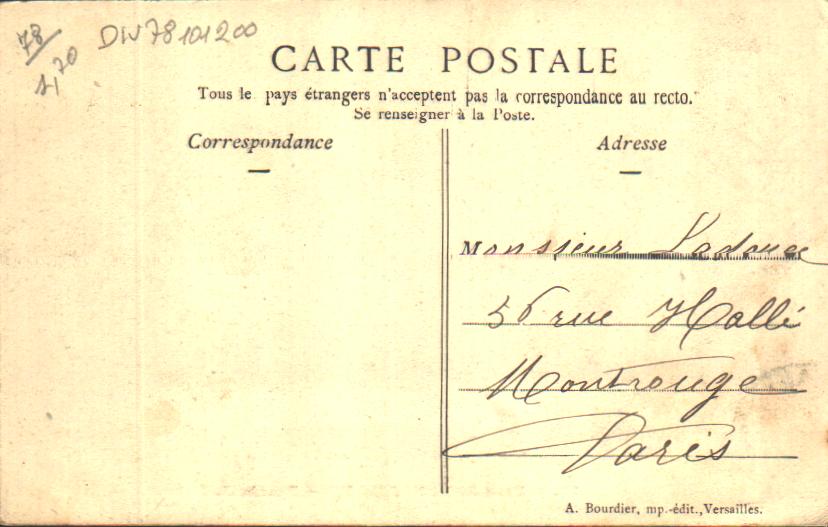 78
1,70
DIV78101200
CARTE POSTALE
Tous le pays étrangers n'acceptent pas la correspondance au recto.
Se renseigner à la Poste.
Correspondance
Adresse
Monsieur Ladouce
56 rue Hallé
Montrouge
Paris
A. Bourdier, mp.-édit., Versailles.